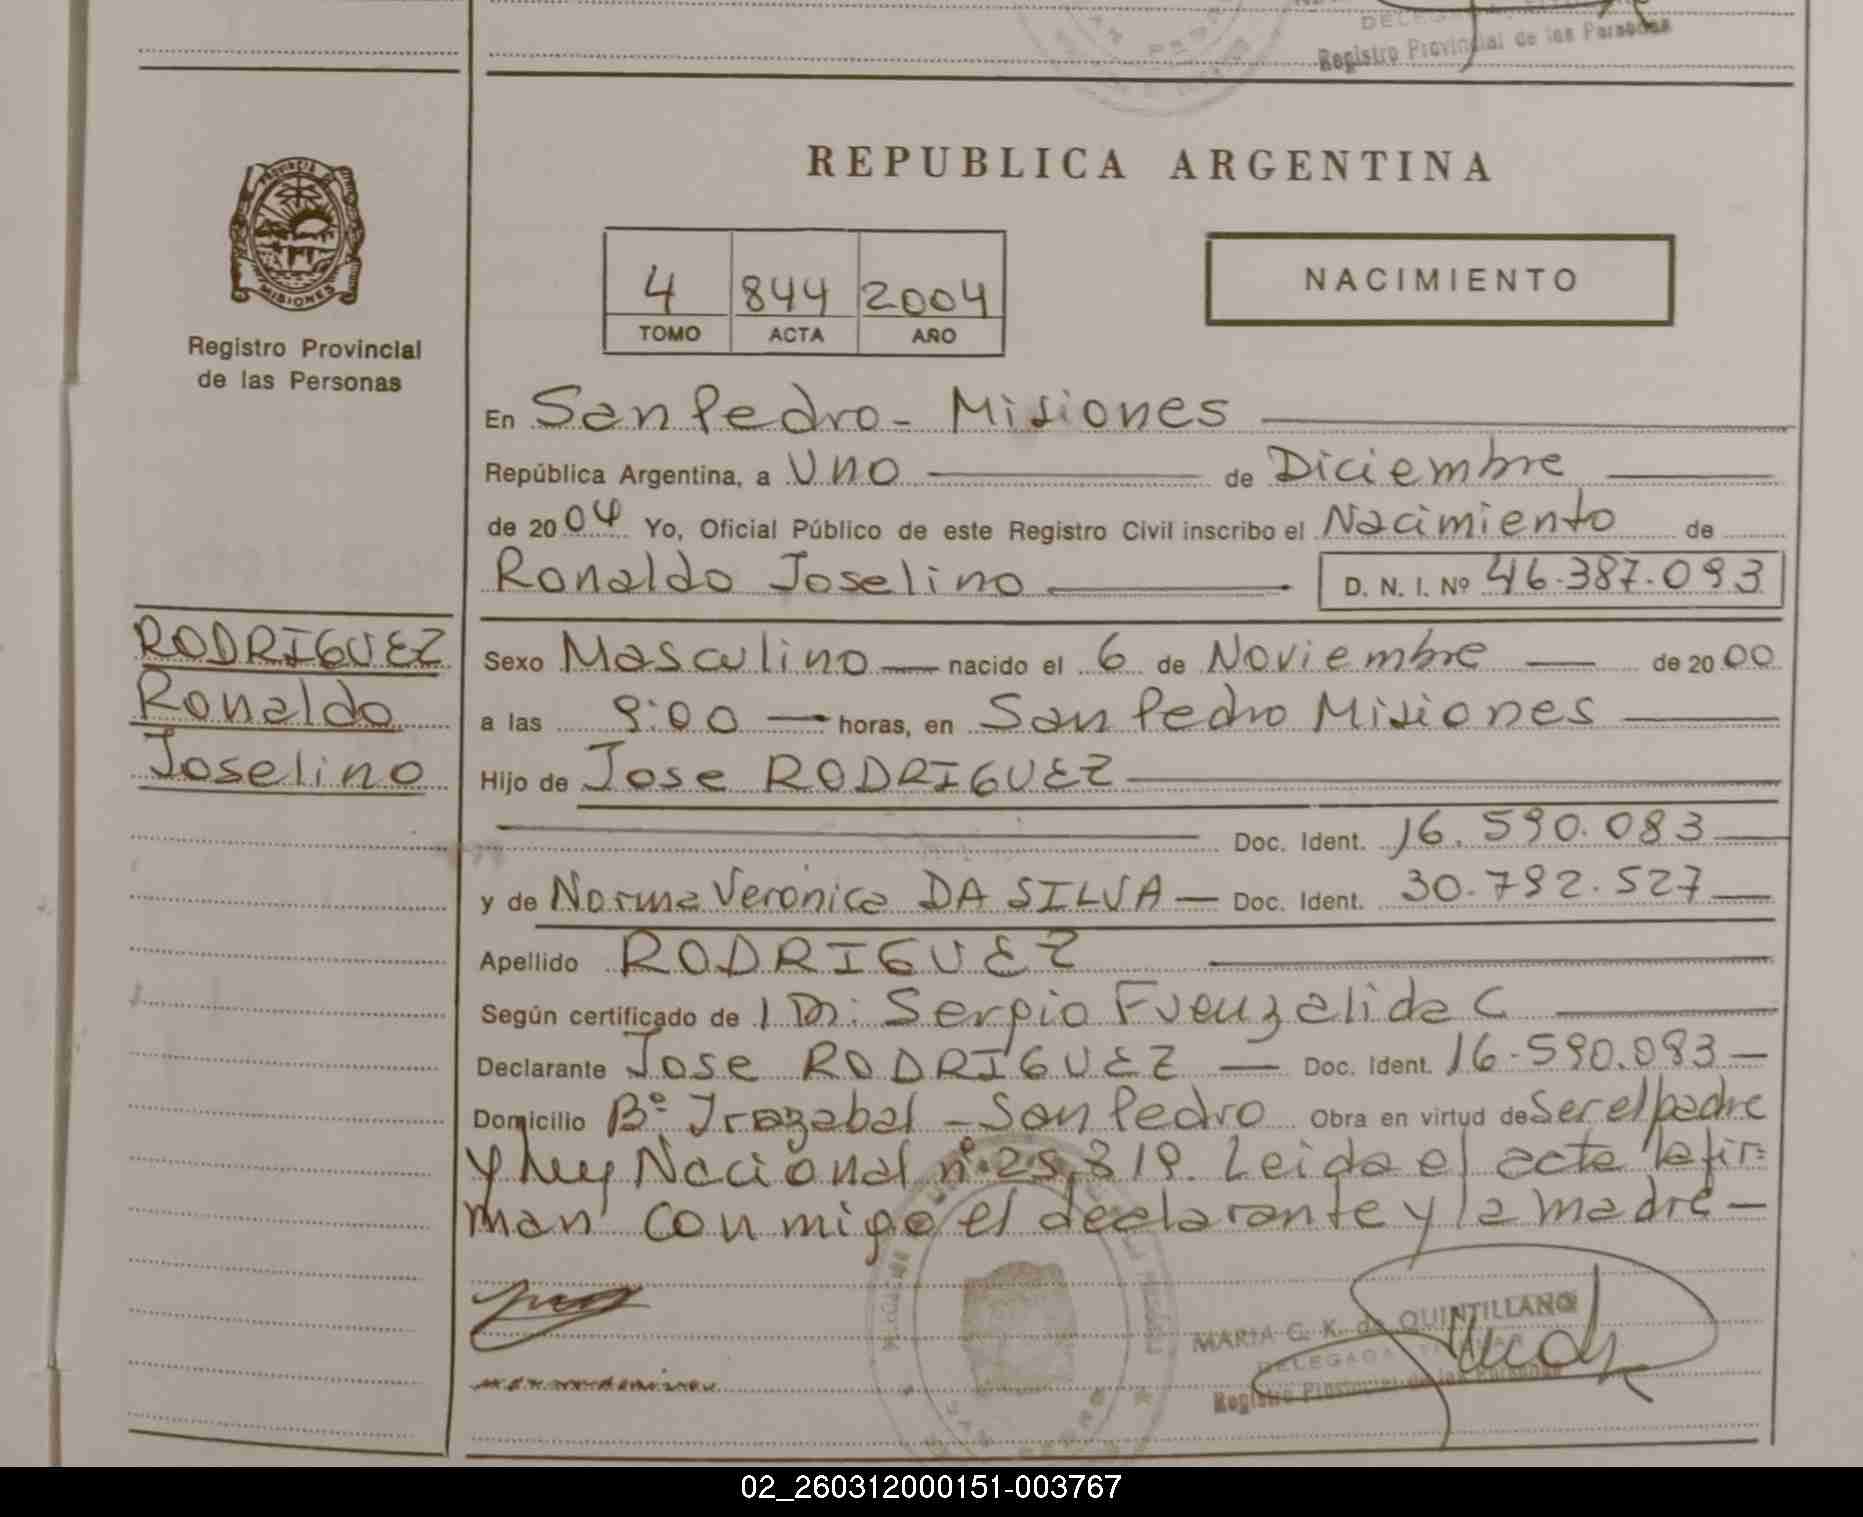 DELEGADA TITULAR
Registro Provincial de las Personas
REPUBLICA ARGENTINA
PROVINCIA
MISIONES
Registro Provincial
de las Personas
4 844 2004
TOMO ACTA AÑO
NACIMIENTO
En San Pedro - Misiones
República Argentina, a Uno de Diciembre
de 2004 Yo, Oficial Público de este Registro Civil inscribo el Nacimiento de
Ronaldo Joselino D. N. I. Nº 46.387.093
RODRIGUEZ
Ronaldo
Joselino
Sexo Masculino nacido el 6 de Noviembre de 2000
a las 9:00 horas, en San Pedro Misiones
Hijo de Jose RODRIGUEZ
Doc. Ident. 16.590.083
y de Norma Verónica DA SILVA Doc. Ident. 30.792.527
Apellido RODRIGUEZ
Según certificado de 1 Dr: Sergio Fuenzalida C
Declarante Jose RODRIGUEZ Doc. Ident. 16.590.083
Domicilio Bº Irazabal - San Pedro Obra en virtud de Ser el padre
y Ley Nacional nº 25.819. Leida el acta la fir=
man conmigo el declarante y la madre
MARIA G. K. de QUINTILLANO
DELEGADA TITULAR
Registro Provincial de las Personas
02_260312000151-003767